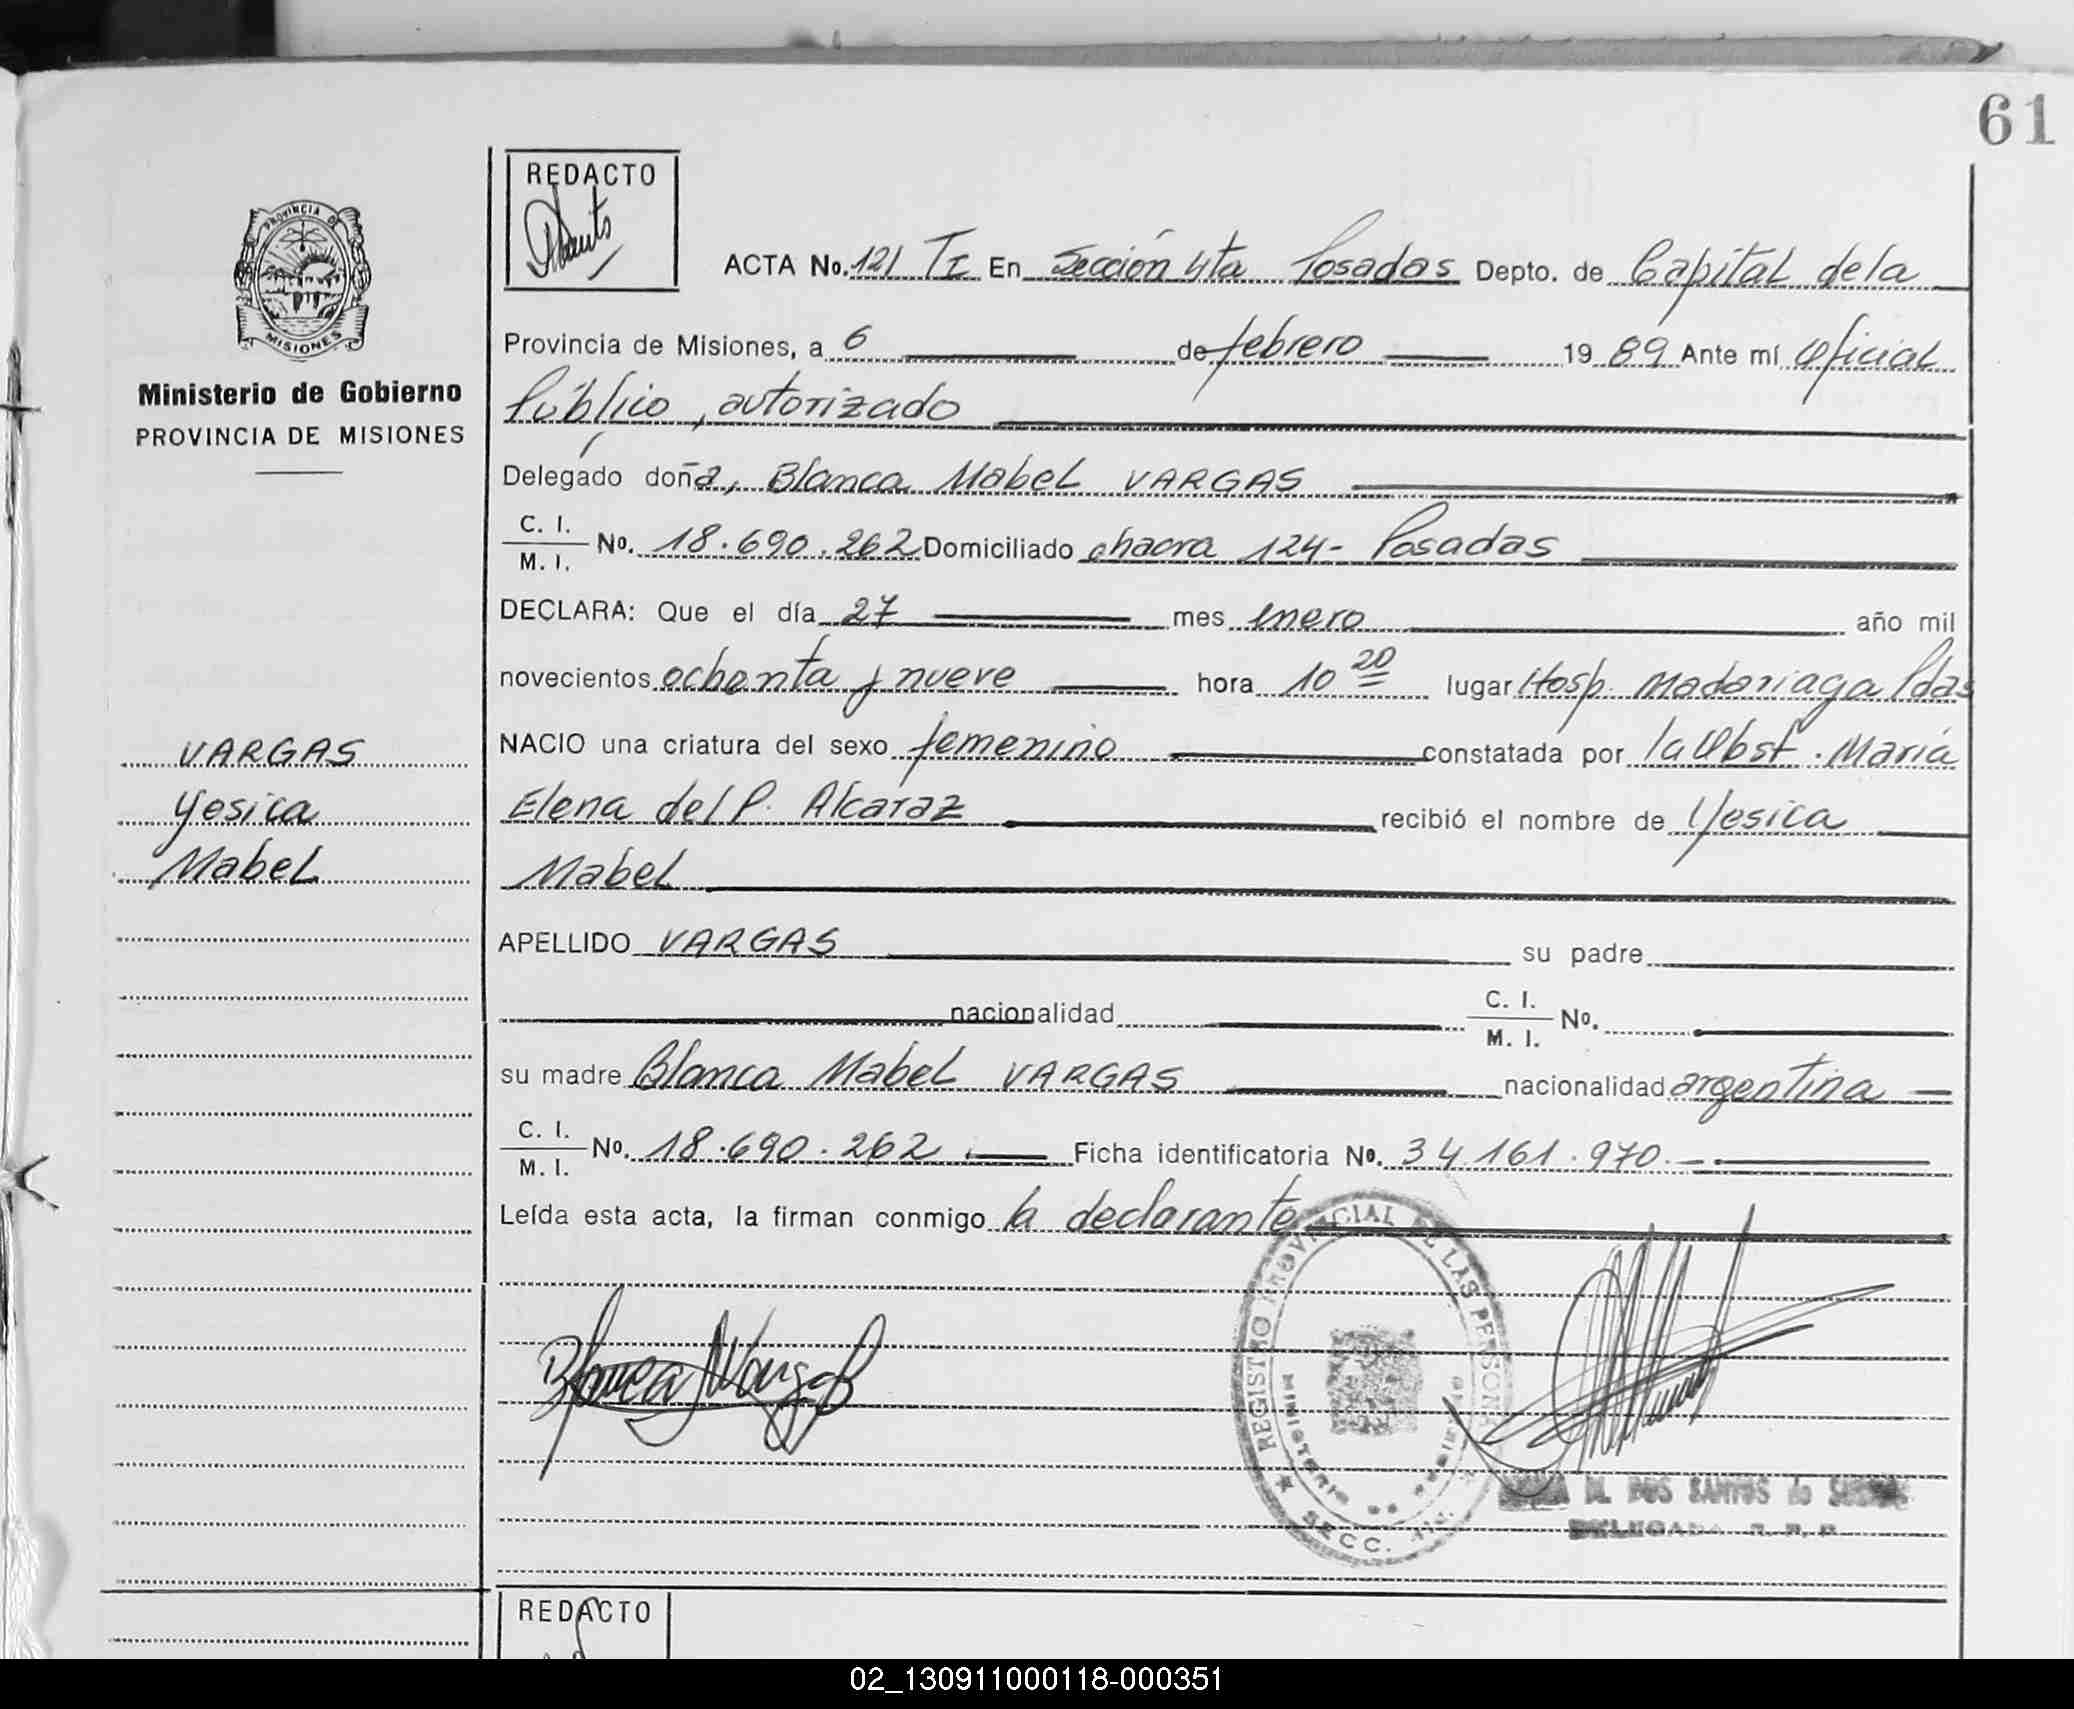 61
REDACTO
PROVINCIA DE
MISIONES
ACTA No. 121 TI En Sección 4ta Posadas Depto. de Capital de la
Provincia de Misiones, a 6 de febrero 1989 Ante mí Oficial
Ministerio de Gobierno
Público, autorizado
PROVINCIA DE MISIONES
Delegado doña, Blanca Mabel VARGAS
C. I.
M. I. No. 18.690.262 Domiciliado chacra 124- Posadas
DECLARA: Que el día 27 mes enero año mil
novecientos ochenta y nueve hora 10 20 lugar Hosp. Madariaga Pdas
VARGAS
NACIO una criatura del sexo femenino constatada por la Obst. María
Yesica
Elena del P. Alcaraz recibió el nombre de Yesica
Mabel
Mabel
APELLIDO VARGAS su padre
nacionalidad C. I.
M. I. No.
su madre Blanca Mabel VARGAS nacionalidad argentina
C. I.
M. I. No. 18.690.262 Ficha identificatoria No. 34.161.970.-
Leída esta acta, la firman conmigo la declarante
REGISTRO PROVINCIAL DE LAS PERSONAS
SECC.
Blanca M Vargas
M. DOS SANTOS de
DELEGADA
REDACTO
02_130911000118-000351